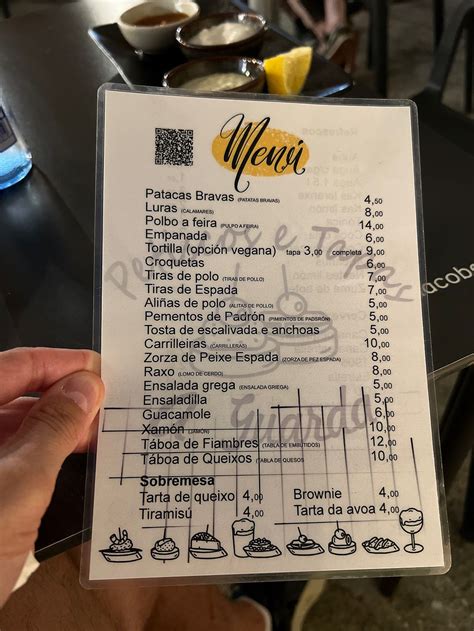 Menú
Patacas Bravas (PATATAS BRAVAS) 4,50
Luras (CALAMARES) 8,00
Polbo a feira (PULPO A FEIRA) 14,00
Empanada 6,00
Tortilla (opción vegana) tapa 3,00 completa 9,00
Croquetas 6,00
Tiras de polo (TIRAS DE POLLO) 7,00
Tiras de Espada 7,00
Aliñas de polo (ALITAS DE POLLO) 5,00
Pementos de Padrón (PIMIENTOS DE PADSRÓN) 5,00
Tosta de escalivada e anchoas 5,00
Carrilleiras (CARRILLERAS) 10,00
Zorza de Peixe Espada (ZORZA DE PEZ ESPADA) 8,00
Raxo (LOMO DE CERDO) 8,00
Ensalada grega (ENSALADA GRIEGA) 8,00
Ensaladilla 5,00
Guacamole 6,00
Xamón (JAMÓN) 10,00
Táboa de Fiambres (TABLA DE EMBUTIDOS) 12,00
Táboa de Queixos (TABLA DE QUESOS 10,00
Sobremesa
Tarta de queixo 4,00 Brownie 4,00
Tiramisú 4,00 Tarta da avoa 4,00
e Tapas
Guarda